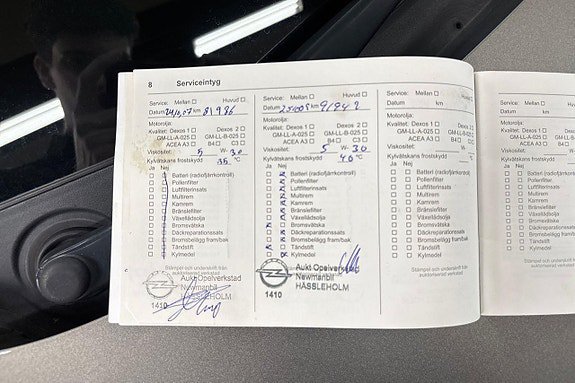 8 Serviceintyg
Service: Mellan Huvud
Datum km 81986
Motorolja:
Kvalitet: Dexos 1 Dexos 2
GM-LL-A-025 GM-LL-B-025
ACEA A3 B4 C3
Viskositet: 5 W- 30
Kylvätskans frostskydd 35 °C
Ja Nej
Batteri (radiofjärrkontroll)
Pollenfilter
Luftfilterinsats
Multirem
Kamrem
Bränslefilter
Växellådsolja
Bromsvätska
Däckreparationssats
Bromsbelägg fram/bak
Tändstift
Kylmedel
Stämpel och underskrift från
auktoriserad verkstad
Aukt Opelverkstad
Newmanbil
HÄSSLEHOLM
1410
Service: Mellan Huvud
Datum km
Motorolja:
Kvalitet: Dexos 1 Dexos 2
GM-LL-A-025 GM-LL-B-025
ACEA A3 B4 C3
Viskositet: 5 W- 30
Kylvätskans frostskydd 40 °C
Ja Nej
Batteri (radiofjärrkontroll)
Pollenfilter
Luftfilterinsats
Multirem
Kamrem
Bränslefilter
Växellådsolja
Bromsvätska
Däckreparationssats
Bromsbelägg fram/bak
Tändstift
Kylmedel
Aukt Opelverkstad
Newmanbil
HÄSSLEHOLM
1410
Service: Mellan Huvud
Datum km
Motorolja:
Kvalitet: Dexos 1 Dexos 2
GM-LL-A-025 GM-LL-B-025
ACEA A3 B4 C3
Viskositet: W-
Kylvätskans frostskydd °C
Ja Nej
Batteri (radiofjärrkontroll)
Pollenfilter
Luftfilterinsats
Multirem
Kamrem
Bränslefilter
Växellådsolja
Bromsvätska
Däckreparationssats
Bromsbelägg fram/bak
Tändstift
Kylmedel
Stämpel och underskrift från
auktoriserad verkstad
Service: Mellan
Datum
Motorolja:
Kvalitet: Dexos 1
GM-LL-A-025
ACEA A3
Viskositet:
Kylvätskans frostskydd
Ja Nej
Batteri
Pollenfilter
Luftfilterinsats
Multirem
Kamrem
Bränslefilter
Växellådsolja
Bromsvätska
Tändstift
Kylmedel